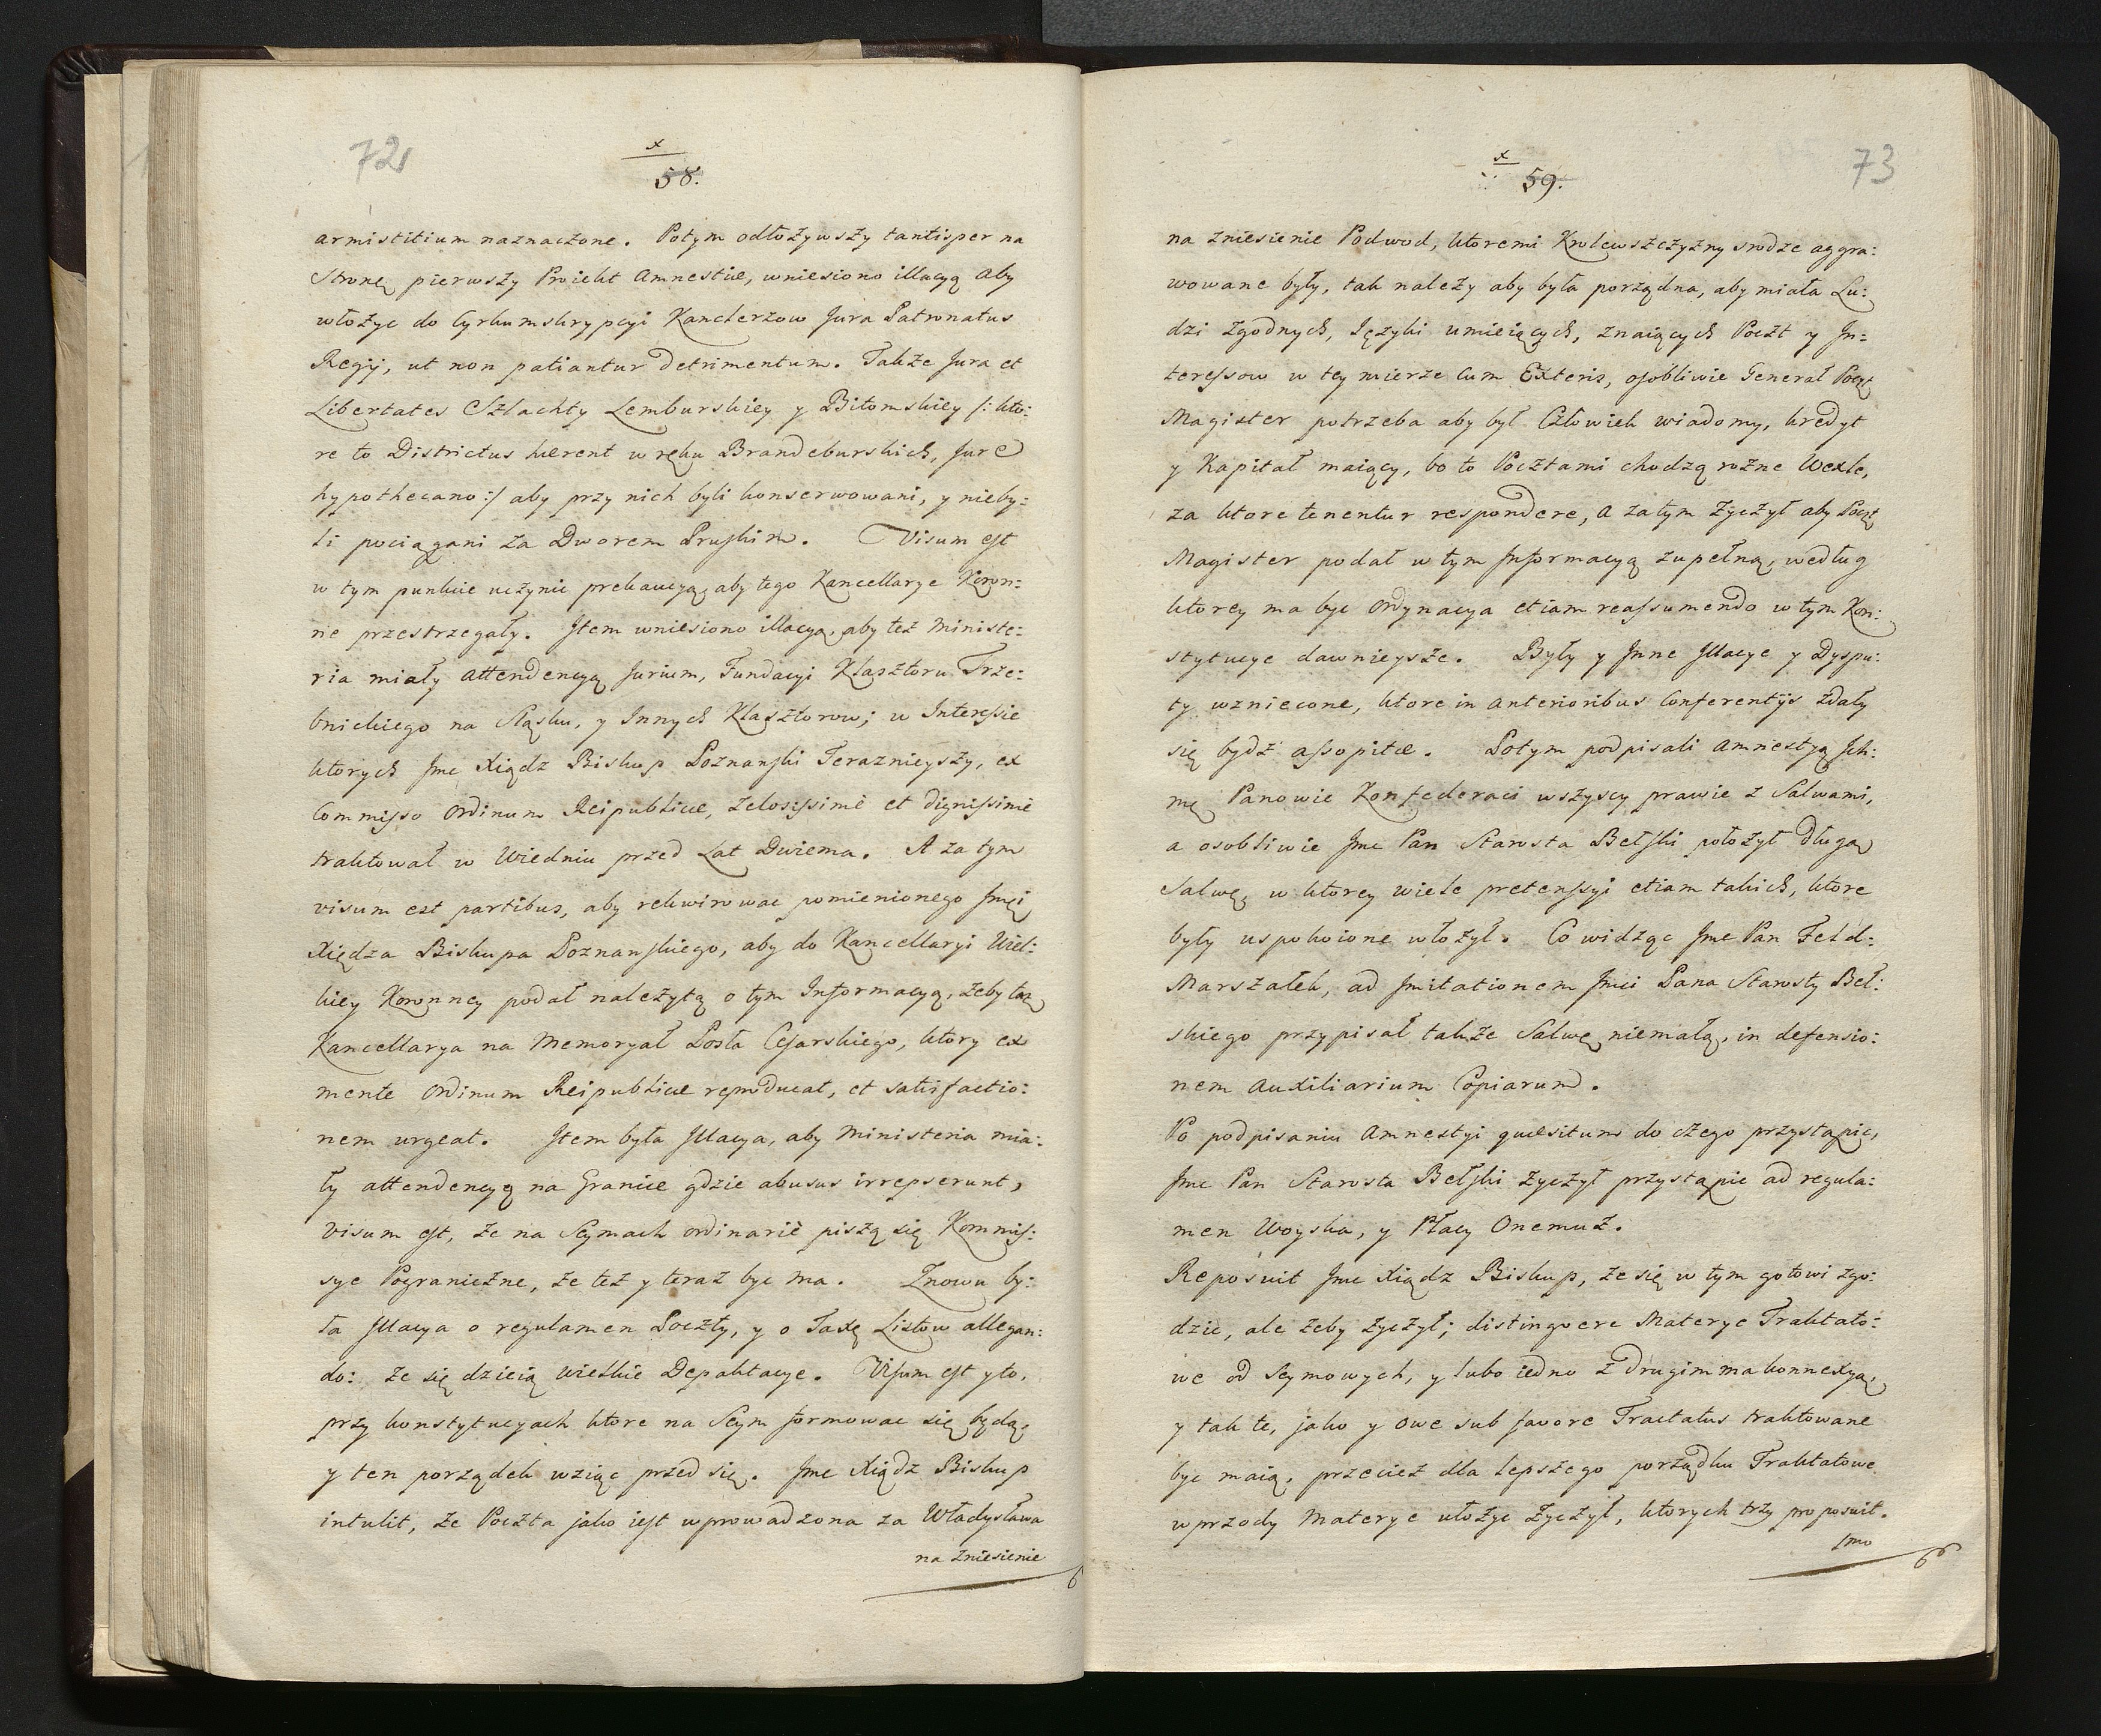 72
x
58.
armistitium naznaczone. Potym odłożywszy tantisper na
stronę pierwszy Proiekt Amnestiæ, wniesiono illacyą aby
włożyc do Cyrkumskrypcyi Kanclerzow Jura Patronatus
Regij, ut non patiantur detrimentum. Także Jura et
Libertates Szlachty Lemburskiey y Bitomskiey /: kto:
re to Districtus hærent w ręku Brandeburskich, Jure
hypothecano :/ aby przy nich byli konserwowani, y nieby:
li pociągani za Dworem Pruskim. Visum est
w tym punkcie uczynic prekaucyą, aby tego Kancellarye Koron:
ne przestrzegały. Item wniesiono illacyą, aby też Ministe:
ria miały attendencyą Jurium, Fundacyi Klasztoru Trze:
bnickiego na Sląsku, y Innych Klasztorow; w Interessie
ktorych Jmc Xiądz Biskup Poznanski Terazniejszy, ex
Commisso Ordinum Reipublicæ, zelosissimè et dignissimè
traktował w Wiedniu przed Lat Dwiema. A za tym
visum est partibus, aby rekwirowac pomienionego Jmci
Xiędza Biskupa Poznanskiego, aby do Kancellaryi Wiel:
kiey Koronney podał należytą o tym Informacyą, żeby taż
Kancellarya na Memoryał Posła Cesarskiego, ktory ex
mente Ordinum Reipublicæ reproducat, et satisfactio:
nem urgeat. Item była Illacya, aby Ministeria mia:
ły attendencyą na Granice gdzie abusus irrepserunt,
visum est, że na Seymach ordinariè piszą się Kommis:
sye Pograniczne, że też y teraz byc ma. Znowu by:
ła Illacya o regulamen Poczty, y o Taxę Listow allegan:
do: że się dzieią wielkie Depaktacye. Visum est y to,
przy konstytucyach ktore na Seym formowac się będą,
y ten porządek wziąc przed się. Jmc Xiądz Biskup
intulit, że Poczta jako iest wprowadzona za Władysława
na zniesienie
73
x
59.
na zniesienie Podwod, ktoremi Krolewszczyzny srodze aggra:
wowane były, tak należy aby była porządna, aby miała Lu:
dzi zgodnych, Języki umieiących, znaiących Poczt y In:
teressow w tey mierze cum Exteris, osobliwie Generał Poczt
Magister potrzeba aby był Człowiek wiadomy, kredyt
y Kapitał maiący, bo to Pocztami chodzą rożne Wexle,
za ktore tenentur respondere, a zatym życzył aby Poczt
Magister podał w tym Informacyą zupełną, według
ktorey ma byc Ordynacya etiam reassumendo w tym Kon:
stytucye dawnieysze. Były y Inne Illacye y Dyspu:
ty wzniecone, ktore in anterioribus Conferentijs zdały
się bydź assopitæ. Potym podpisali Amnestyą Jch:
mę Panowie Konfederaci wszyscy prawie z Salwami,
a osobliwie Jmc Pan Starosta Bełski położył długą
Salwę, w ktorey wiele pretensyi etiam takich, ktore
były uspokoione włożył. Co widząc Jmc Pan Feld:
Marszałek, ad Imitationem Jmci Pana Starosty Beł:
skiego przypisał także Salwę niemałą, in defensio:
nem Auxiliarium Copiarum.
Po podpisaniu Amnestyi quæsitum do czego przystąpic,
Jmc Pan Starosta Bełski życzył przystąpic ad regula:
men Woyska, y Płacy Onemuż.
Reposuit Jmc Xiądz Biskup, że się w tym gotowi zgo:
dzic, ale żeby życzył; distingvere Materye Traktato:
we od Seymowych, y lubo iedno z drugim ma konnexyą,
y tak te, jako y owe sub favore Tractatus traktowane
byc maią, przecież dla lepszego porządku Traktatowe
wprzody Materye ułożyc życzył, ktorych trzy proposuit.
1mo